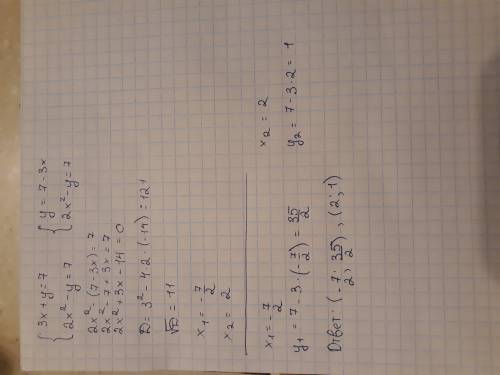 { 3x + y = 7 { y = 7 - 3x
{ 2x² - y = 7 { 2x² - y = 7
2x² - (7 - 3x) = 7
2x² - 7 + 3x = 7
2x² + 3x - 14 = 0
D = 3² - 4·2·(-14) = 121
√D = 11
x₁ = -7/2
x₂ = 2
x₁ = -7/2 x₂ = 2
y₁ = 7 - 3·(-7/2) = 35/2 y₂ = 7 - 3·2 = 1
Ответ: (-7/2; 35/2), (2; 1)